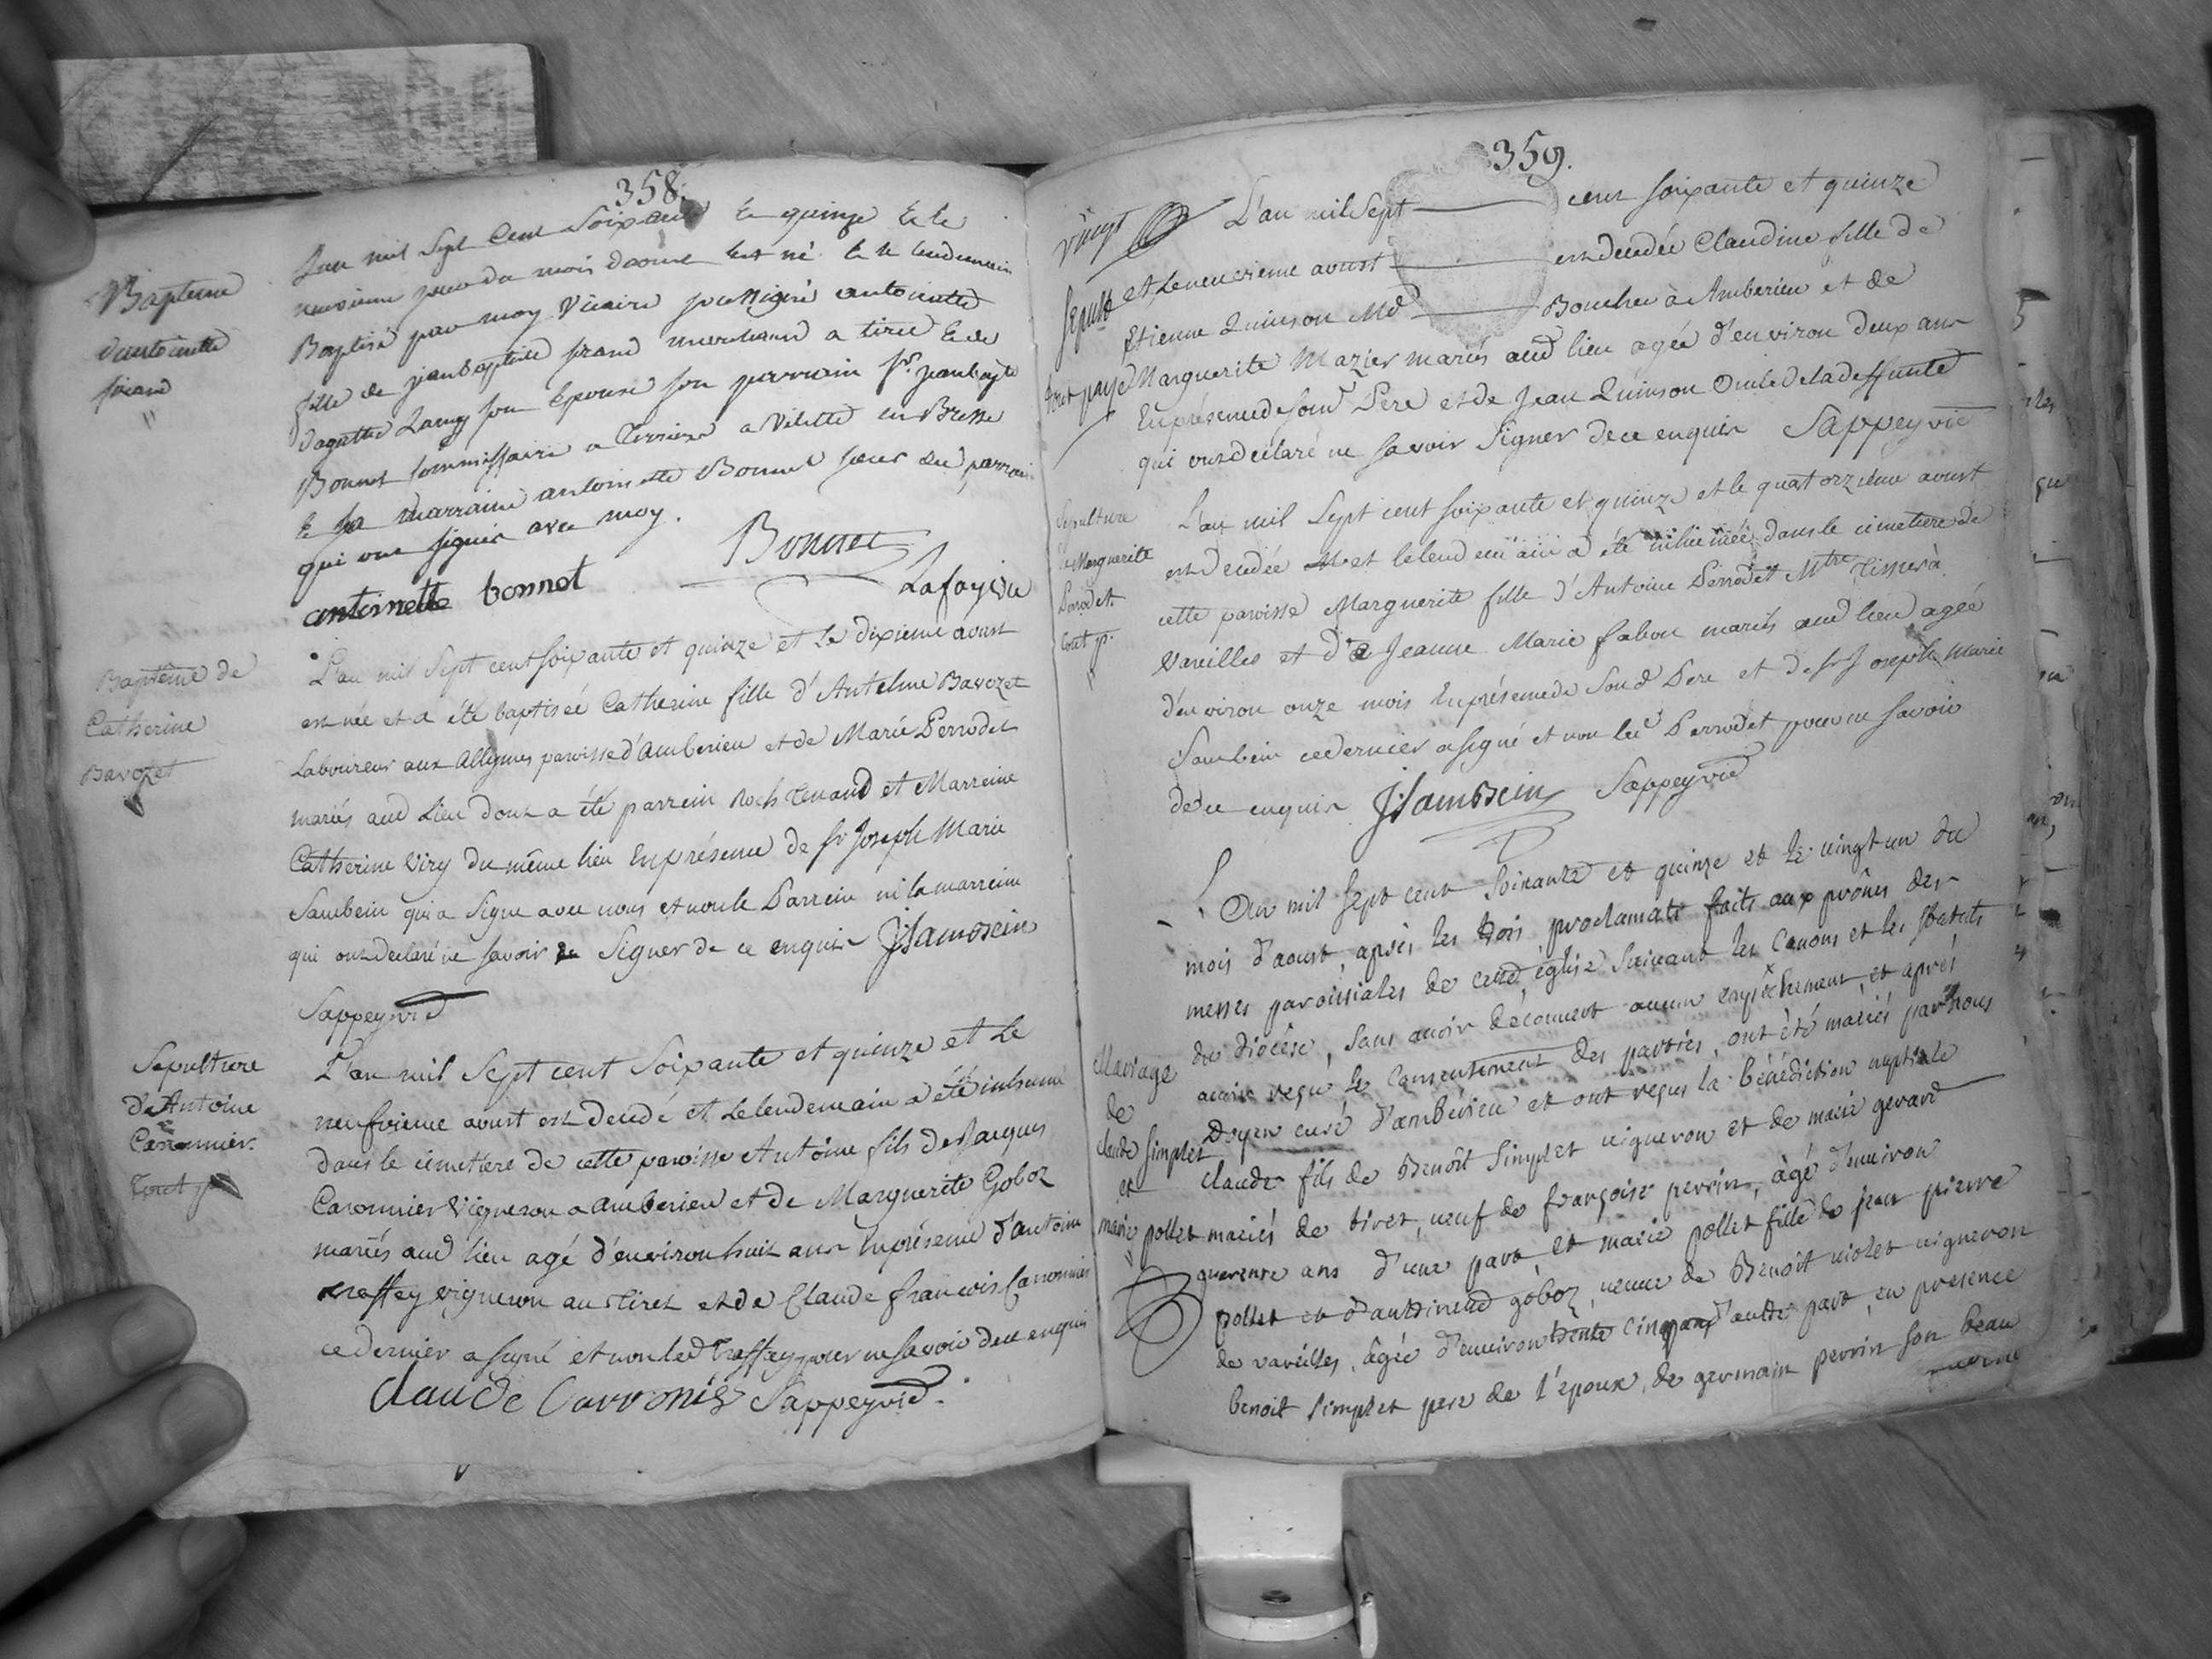 358.
Bapteme
dantoinette
frand
Lan mil Sept Cent Soixante Et quinze Et le
neuvieme jour du mois daoust Est né Et le lendemain
Baptisé par moy Vicaire soussigné antoinette
fille de jeanbaptiste frand marchand a tiret Et de
dagathe Lamy son Epouse son parrain Sr. jeanbapte
Bonnet Commissaire a Terrier a Vilette en Bresse
Et Sa marraine antoinette Bonnet soeur du parrain
qui ont signés avec moy.
Bonnet
antoinette bonnet
Lafayere
Baptême de
Catherine
Bavozet
L'an mil Sept cent soixante et quinze et Le dixieme aoust
est née et a été baptisée Catherine fille d'Antelme Bavozet
Laboureur aux allymes paroisse d'amberieu et de Marie Perrodet
mariés aud Lieu dont a été parrein Roch Tenand et Marreine
Catherine Viry du même lieu En présence de Sr Joseph Marie
Sambein qui a Signe avec nous et non le Parrein ni la marreine
qui ont declaré ne savoir Signer de ce enquis JSambein
Sappeyvid
Sepulture
d'Antoine
Caronnier.
Tout p
L'an mil Sept cent Soixante et quinze et Le
neufvieme aoust est decedé et Le lendemain a été inhumé
dans le cimetiere de cette paroisse Antoine fils de Jacques
Caronnier Vigneron a amberieu et de Marguerite Goboz
mariés aud lieu agé d'environ huit ans En présence d'antoine
Treffey vigneron au Tiret et de Claude francois Caronnier
ce dernier a signé et non led Treffey pour ne savoir de ce enquis
Claude Carronié Sappeyvid.
359.
vingt
Sepult
Droit payé
L'an mil Sept cent soixante et quinze
et le neuvieme aoust est decedée Claudine fille de
Etienne Quinson Md Boucher à Amberieu et de
Marguerite Mazier mariés aud lieu agée d'environ deux ans
En présence de Sond Pere et de Jean Quinson Oncle de la deffunte
qui ont declaré ne savoir Signer de ce enquis Sappeyvid
Sepulture
de Marguerite
Perrodet.
tout p.
L'an mil Sept cent soixante et quinze et le quatorzieme aoust
est decedée et le lendemain a été inhumée dans le cimetiere de
cette paroisse Marguerite fille d'Antoine Perrodet Mtre Tisser à
Vareilles et de Jeanne Marie fabon mariés aud lieu agée
d'environ onze mois En présence de Sond Pere et de Sr Joseph Marie
Sambein ce dernier a signé et non led Perrodet pour ne savoir
de ce enquis JSambein Sappeyvid
Mariage
de
claude simplet
et
marie pollet
L'an mil Sept cent Soixante et quinze et le vingt un du
mois d'aoust, après les trois proclamats faits aux prônes des
messes paroissiales de cette église suivant les Canons et les statuts
du diocèse, sans avoir découvert aucun empêchement, et après
avoir reçu le Consentement des parties, ont été mariés par nous
Doyen curé d'ambérieu et ont reçus la bénédiction nuptiale
claude fils de Benoît Simplet vigneron et de marie gerard
mariés de tiret, veuf de françoise perrin, âgé d'environ
quarente ans d'une part, et marie pollet fille de jean pierre
pollet et d'anthinend goboz, veuve de Benoît violet vigneron
de vareilles, âgée d'environ trente cinq ans d'autre part, en presence
benoit simplet pere de l'epoux, de germain perrin son beau